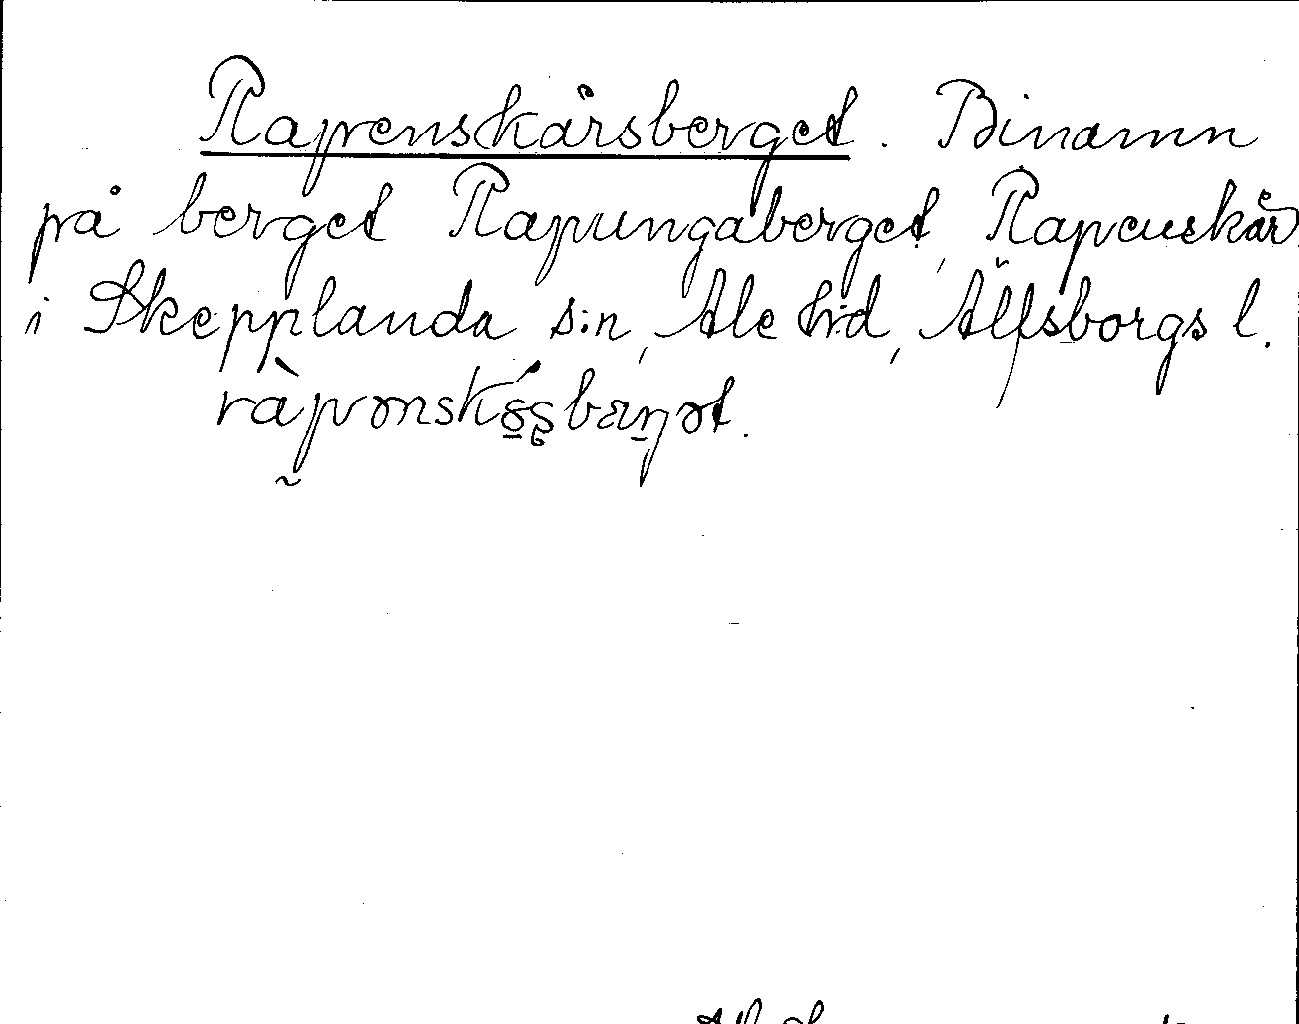 Rapenskårsberget. Binamn
på berget Rapungaberget, Rapenskår
i Skepplanda s:n, Ale hd, Älfsborgs l.